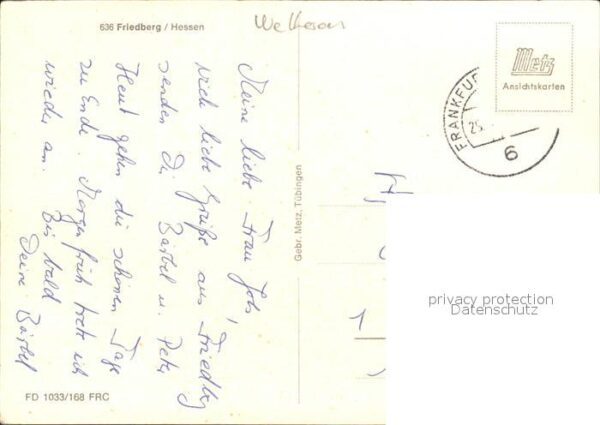 636 Friedberg / Hessen
Metz
Ansichtskarten
FRANKFU
25.
6
Meine liebe Frau
viele liebe Grüße aus Friedberg
senden Dir Bärbel u. Peter
Heut gehen die schönen Tage
zu Ende. Morgen früh trete ich
wieder an. Bis bald
Deine Bärbel
Gebr. Metz, Tübingen
privacy protection
Datenschutz
1
FD 1033/168 FRC